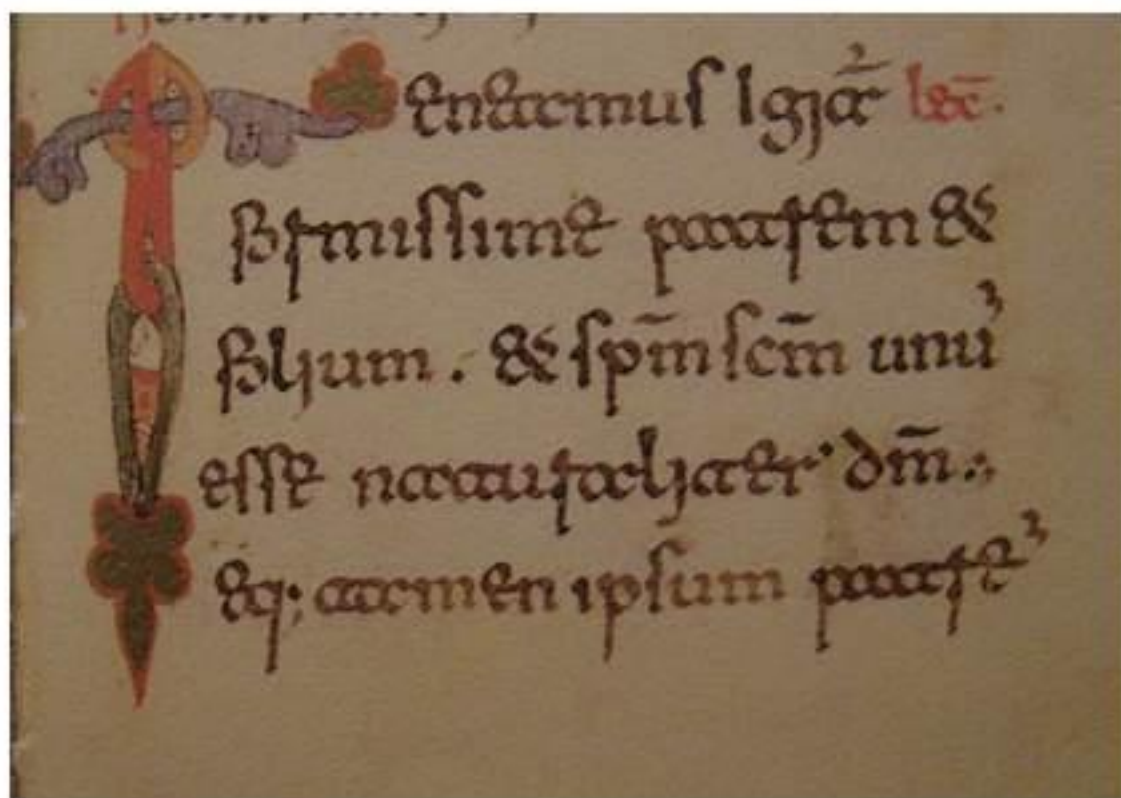 Teneamus igit̄ lec̄.
firmissime patrem et
filium. et sp̄m sc̄m unu
esse naturaliter dm̄.
eq; tamen ipsum patre